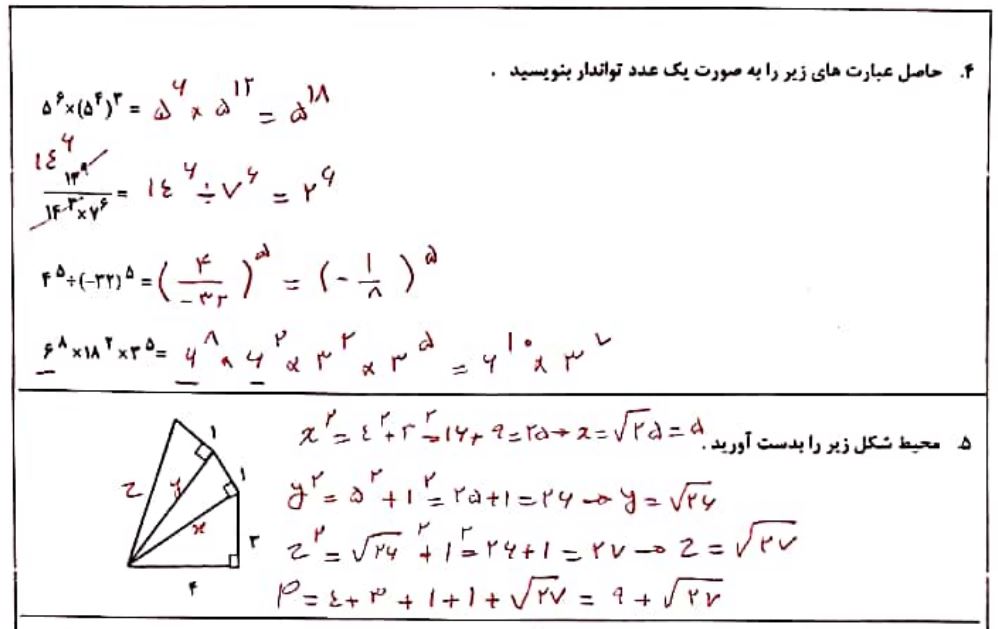 ۴. حاصل عبارت های زیر را به صورت یک عدد تواندار بنویسید .
۵^۶×(۵^۴)^۳ = ۵^۶ × ۵^۱۲ = ۵^۱۸
۱٤^۶
۱۴^۹/(۱۴^۳×۷^۶) = ۱٤^۶ ÷ ۷^۶ = ۲^۶
۴^۵÷(-۳۲)^۵ = (۴/-۳۲)^۵ = (-۱/۸)^۵
۶^۸×۱۸^۲×۳^۵= ۶^۸ × ۶^۲ × ۳^۲ × ۳^۵ = ۶^۱۰ × ۳^۷
۵. محیط شکل زیر را بدست آورید .
x^۲ = ٤^۲+۳^۲=۱۶+۹=۲۵→x=√۲۵=۵
y^۲ = ۵^۲+۱^۲=۲۵+۱=۲۶→y=√۲۶
z^۲ = √۲۶^۲+۱^۲=۲۶+۱=۲۷→z=√۲۷
P=٤+۳+۱+۱+√۲۷=۹+√۲۷
۱
۱
z
y
x
۳
۴